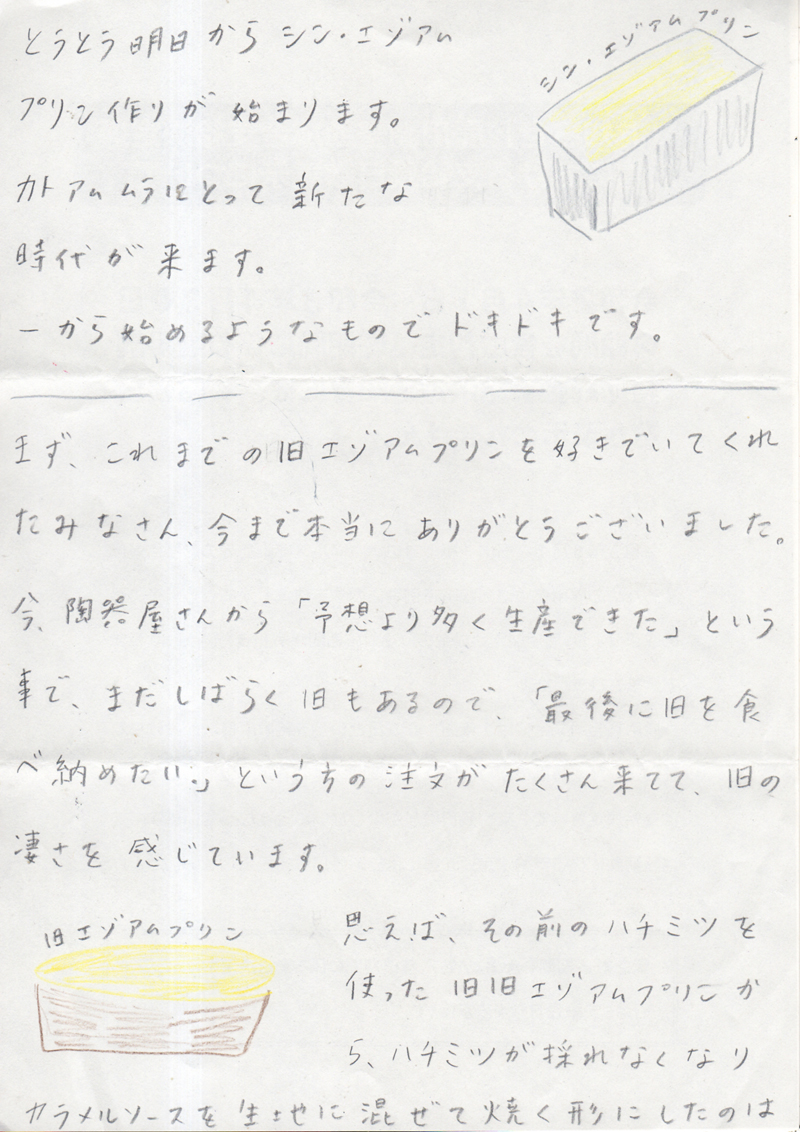 とうとう明日からシン・エゾアム
シン・エゾアムプリン
プリン作りが始まります。
カトアムムラにとって新たな
時代が来ます。
一から始めるようなものでドキドキです。
まず、これまでの旧エゾアムプリンを好きでいてくれ
たみなさん、今まで本当にありがとうございました。
今、陶器屋さんから「予想より多く生産できた」という
事で、まだしばらく旧もあるので、「最後に旧を食
べ納めたい。」という方の注文がたくさん来てて、旧の
凄さを感じています。
旧エゾアムプリン
思えば、その前のハチミツを
使った旧旧エゾアムプリンか
ら、ハチミツが採れなくなり
カラメルソースを生地に混ぜて焼く形にしたのは